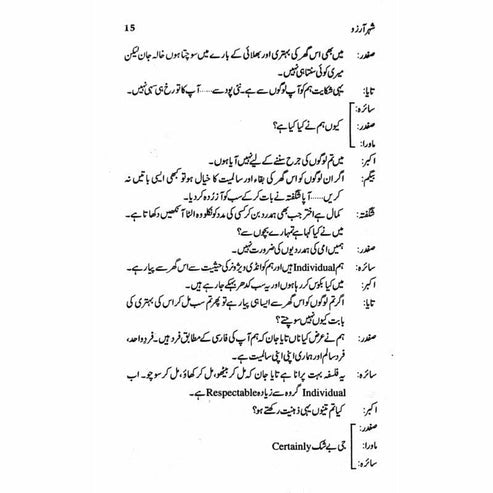 شہر آرزو 15
صفدر: میں بھی اس گھر کی بہتری اور بھلائی کے بارے میں سوچتا ہوں خالہ جان لیکن
میری کوئی سنتا ہی نہیں۔
تایا: یہی شکایت ہم کو آپ لوگوں سے ہے۔ نئی پود سے...... آپ کا تو رخ ہی سہی نہیں۔
سائرہ:
صفدر: کیوں ہم نے کیا کیا ہے؟
ماورا:
اکبر: میں تم لوگوں کی جرح سننے کے لیے نہیں آیا ہوں۔
بیگم: اگر ان لوگوں کو اس گھر کی بقاء اور سالمیت کا خیال ہو تو کبھی ایسی باتیں نہ
کریں...... آپا شگفتہ نے بات کر کے سب کو آزردہ کر دیا۔
شگفتہ: کمال ہے اختر جب بھی ہمدرد بن کر کسی کی مدد کو نکلو وہ الٹا آنکھیں دکھاتا ہے۔
میں نے کیا کہا ہے تمہارے بچوں سے؟
صفدر: ہمیں امی کی ہمدردیوں کی ضرورت نہیں۔
سائرہ: ہم Individual ہیں اور ہم کو انڈی ویژونر کی حیثیت سے اس گھر سے پیار ہے۔
اکبر: میں کیا بکوس کر رہا ہوں اور یہ سب کدھر بہکے جا رہے ہیں۔
تایا: اگر تم لوگوں کو اس گھر سے ایسا ہی پیار ہے تو پھر تم سب مل کر اس کی بہتری کی
بابت کیوں نہیں سوچتے؟
صفدر: ہم نے عرض کیا ناں تایا جان کہ ہم آپ کی فارسی کے مطابق فرد ہیں۔ فرد واحد،
فرد سالم اور ہماری اپنی اپنی سالمیت ہے۔
سائرہ: یہ فلسفہ بہت پرانا ہے تایا جان کہ مل کر بیٹھو، مل کر کھاؤ، مل کر سوچو۔ اب
Individual گروہ سے زیادہ Respectable ہے۔
اکبر: کیا تم تینوں یہی ذہنیت رکھتے ہو؟
صفدر:
ماورا: جی بے شک Certainly
سائرہ: